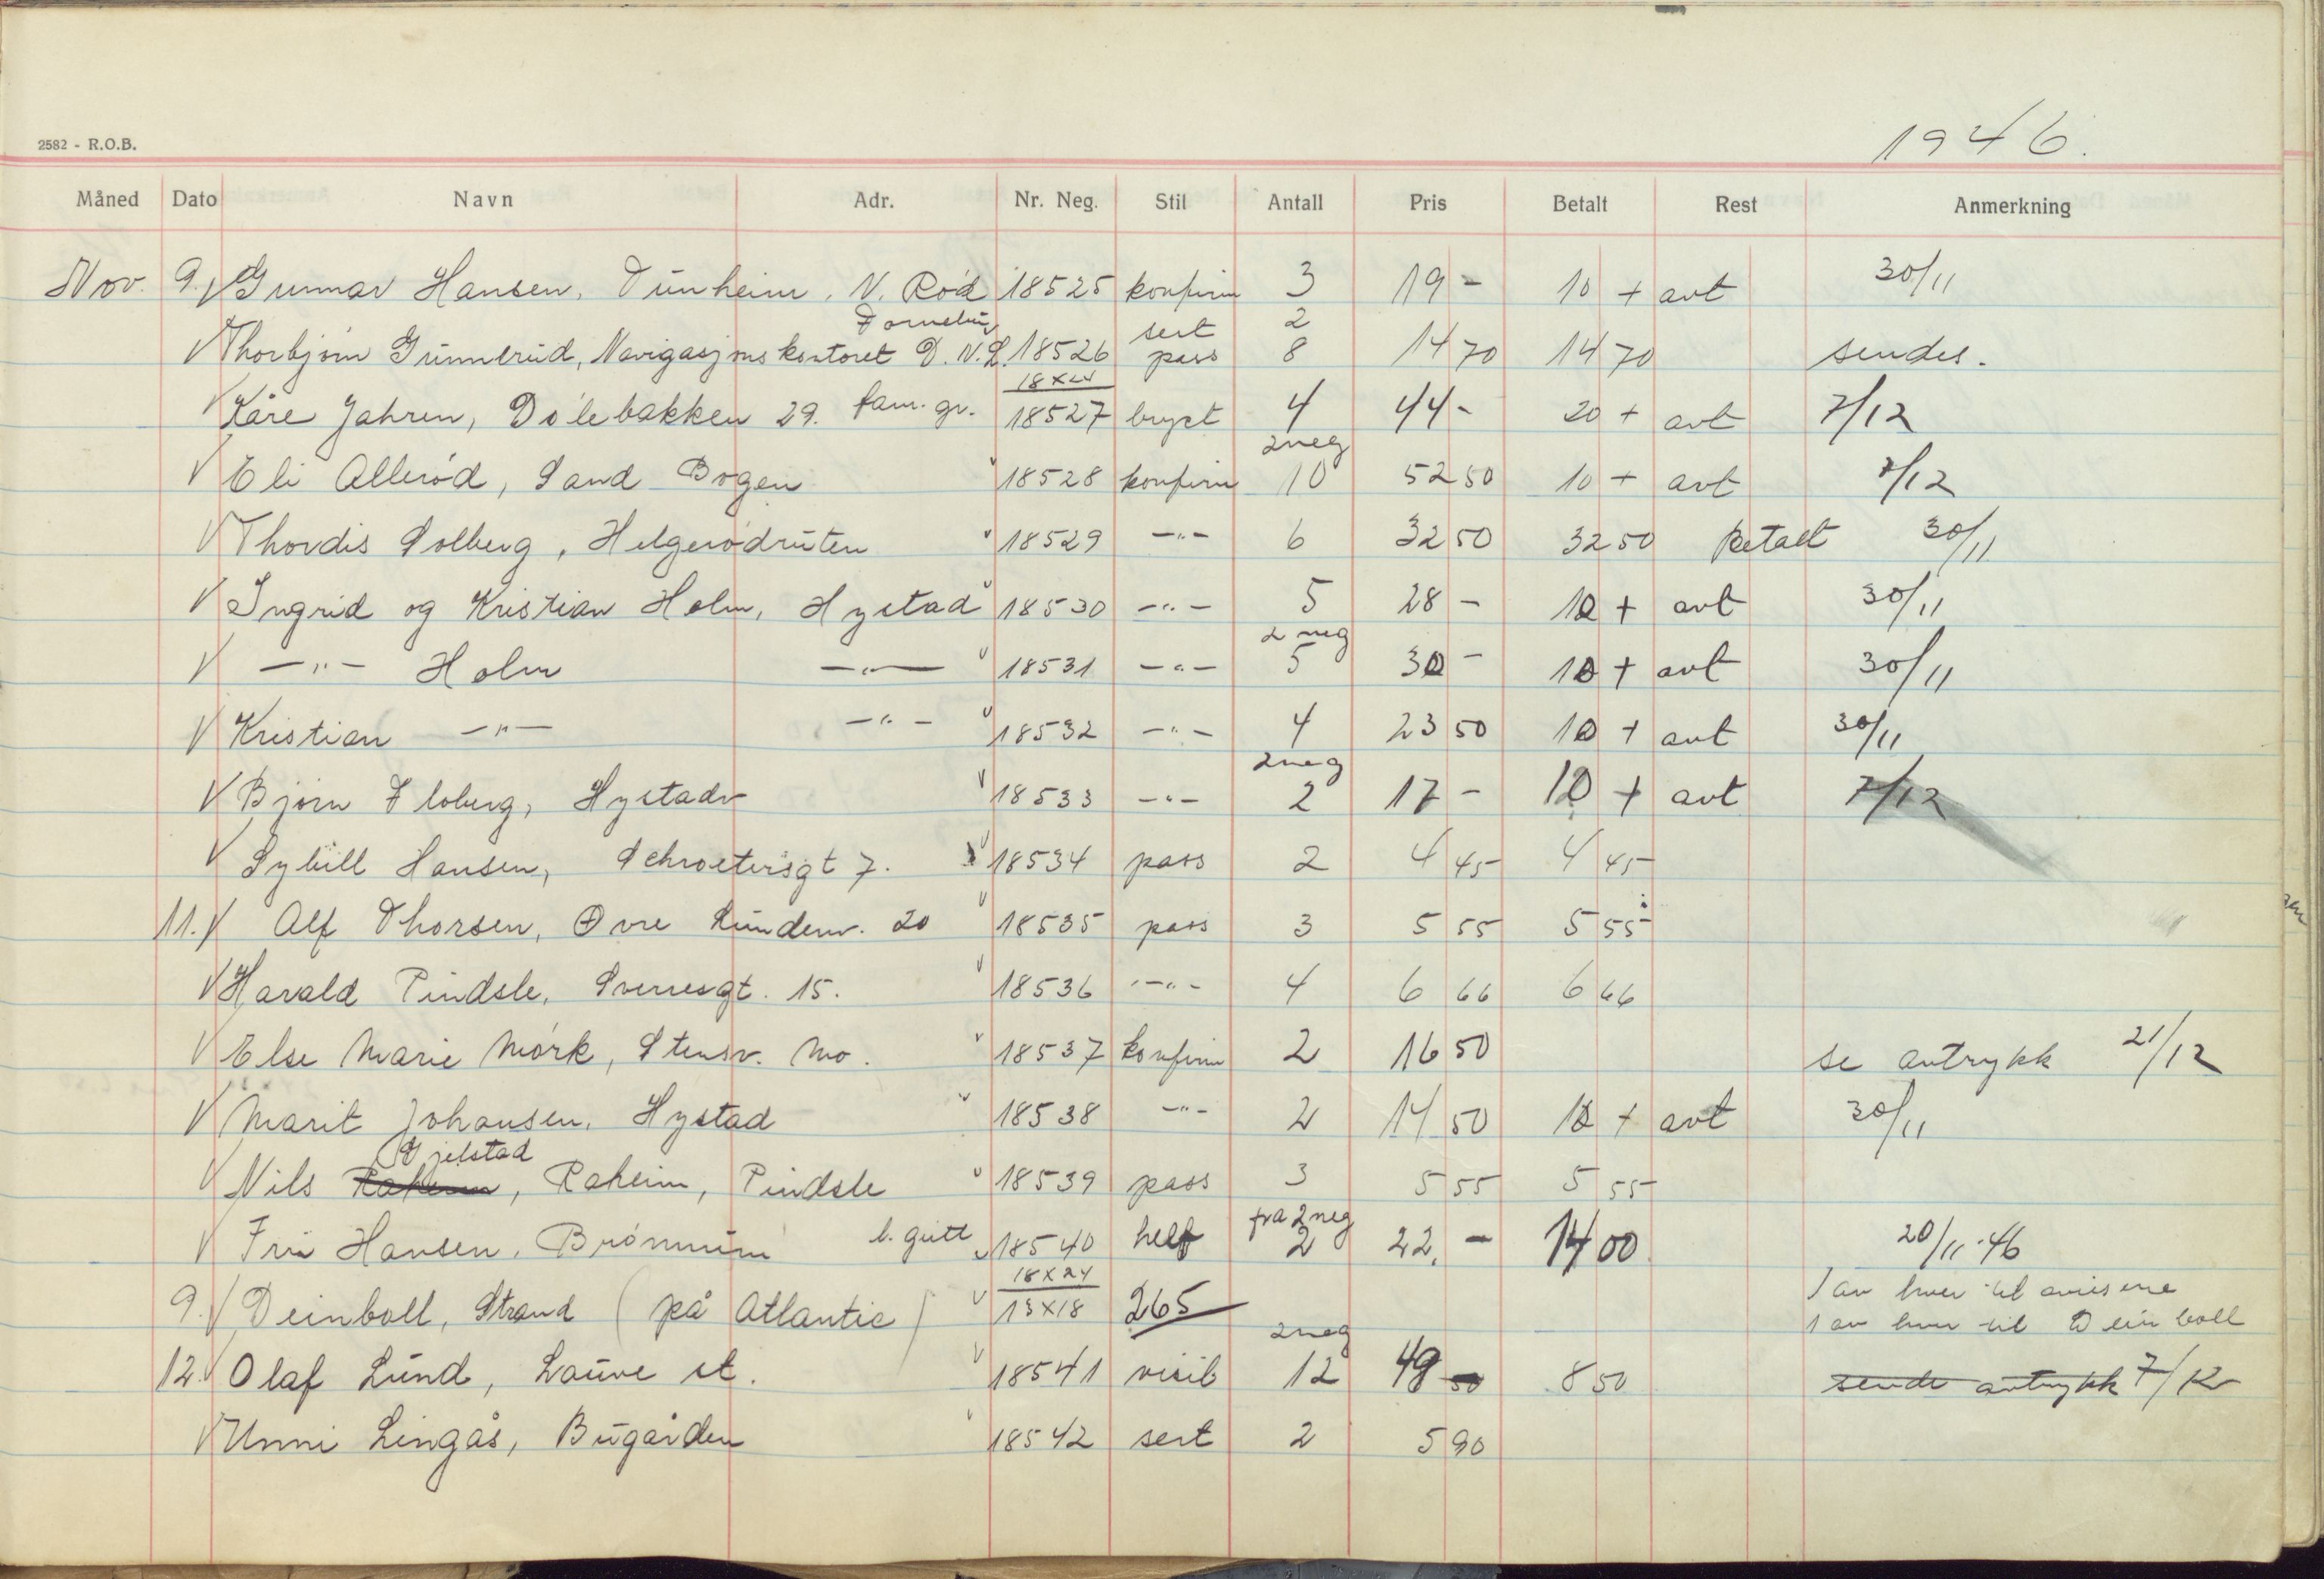 2582 - R.O.B.
1946.
Måned Dato Navn Adr. Nr. Neg. Stil Antall Pris Betalt Rest Anmerkning
Nov. 9. V Gunnar Hansen, Tunheim, N. Rød 18525 konfirm 3 19 - 10 + avt 30/11
Fornebu sert 2
V Thorbjørn Gunnerud, Navigasjonskontoret D.N.L. 18526 pass 8 14 70 14 70 sendes.
18x24
V Kåre Jahren, Dølebakken 29. fam. gr. 18527 bryst 4 44 - 20 + avt 7/12
2 neg
V Eli Allerød, Sand Bogen v 18528 konfirm 10 52 50 10 + avt 7/12
V Thordis Solberg, Helgerødruten v 18529 -"- 6 32 50 32 50 Betalt 30/11
V Ingrid og Kristian Holm, Hystad v 18530 -"- 5 28 - 10 + avt 30/11
2 neg
V -"- Holm -"- v 18531 -"- 5 30 - 10 + avt 30/11
V Kristian -"- -"- v 18532 -"- 4 23 50 10 + avt 30/11
2 neg
V Bjørn Floberg, Hystadv v 18533 -"- 2 17 - 10 + avt 7/12
V Sybill Hansen, Schroetersgt 7. v 18534 pass 2 4 45 4 45
11. V Alf Thorsen, Øvre Lundenv. 20 v 18535 pass 3 5 55 5 55
V Harald Pindsle, Sverresgt. 15. v 18536 -"- 4 6 66 6 66
V Else Marie Mørk, Stensv. Mo. v 18537 konfirm 2 16 50 se avtrykk 21/12
V Marit Johansen, Hystad v 18538 -"- 2 14 50 10 + avt 30/11
Gjelstad
V Nils Raheim, Raheim, Pindsle v 18539 pass 3 5 55 5 55
fra 2 neg
V Fru Hansen, Brønnum l. gutt v 18540 helf 2 22, - 14 00 20/11-46
18x24 1 av hver til avisene
9. V Deinboll, Strand (på Atlantic) v 13x18 265 1 av hver til Deinboll
2 neg
12. V Olaf Lund, Lauve st. v 18541 visit 12 49 50 8 50 sende avtrykk 7/12
V Unni Lingås, Bugården v 18542 sert 2 5 90